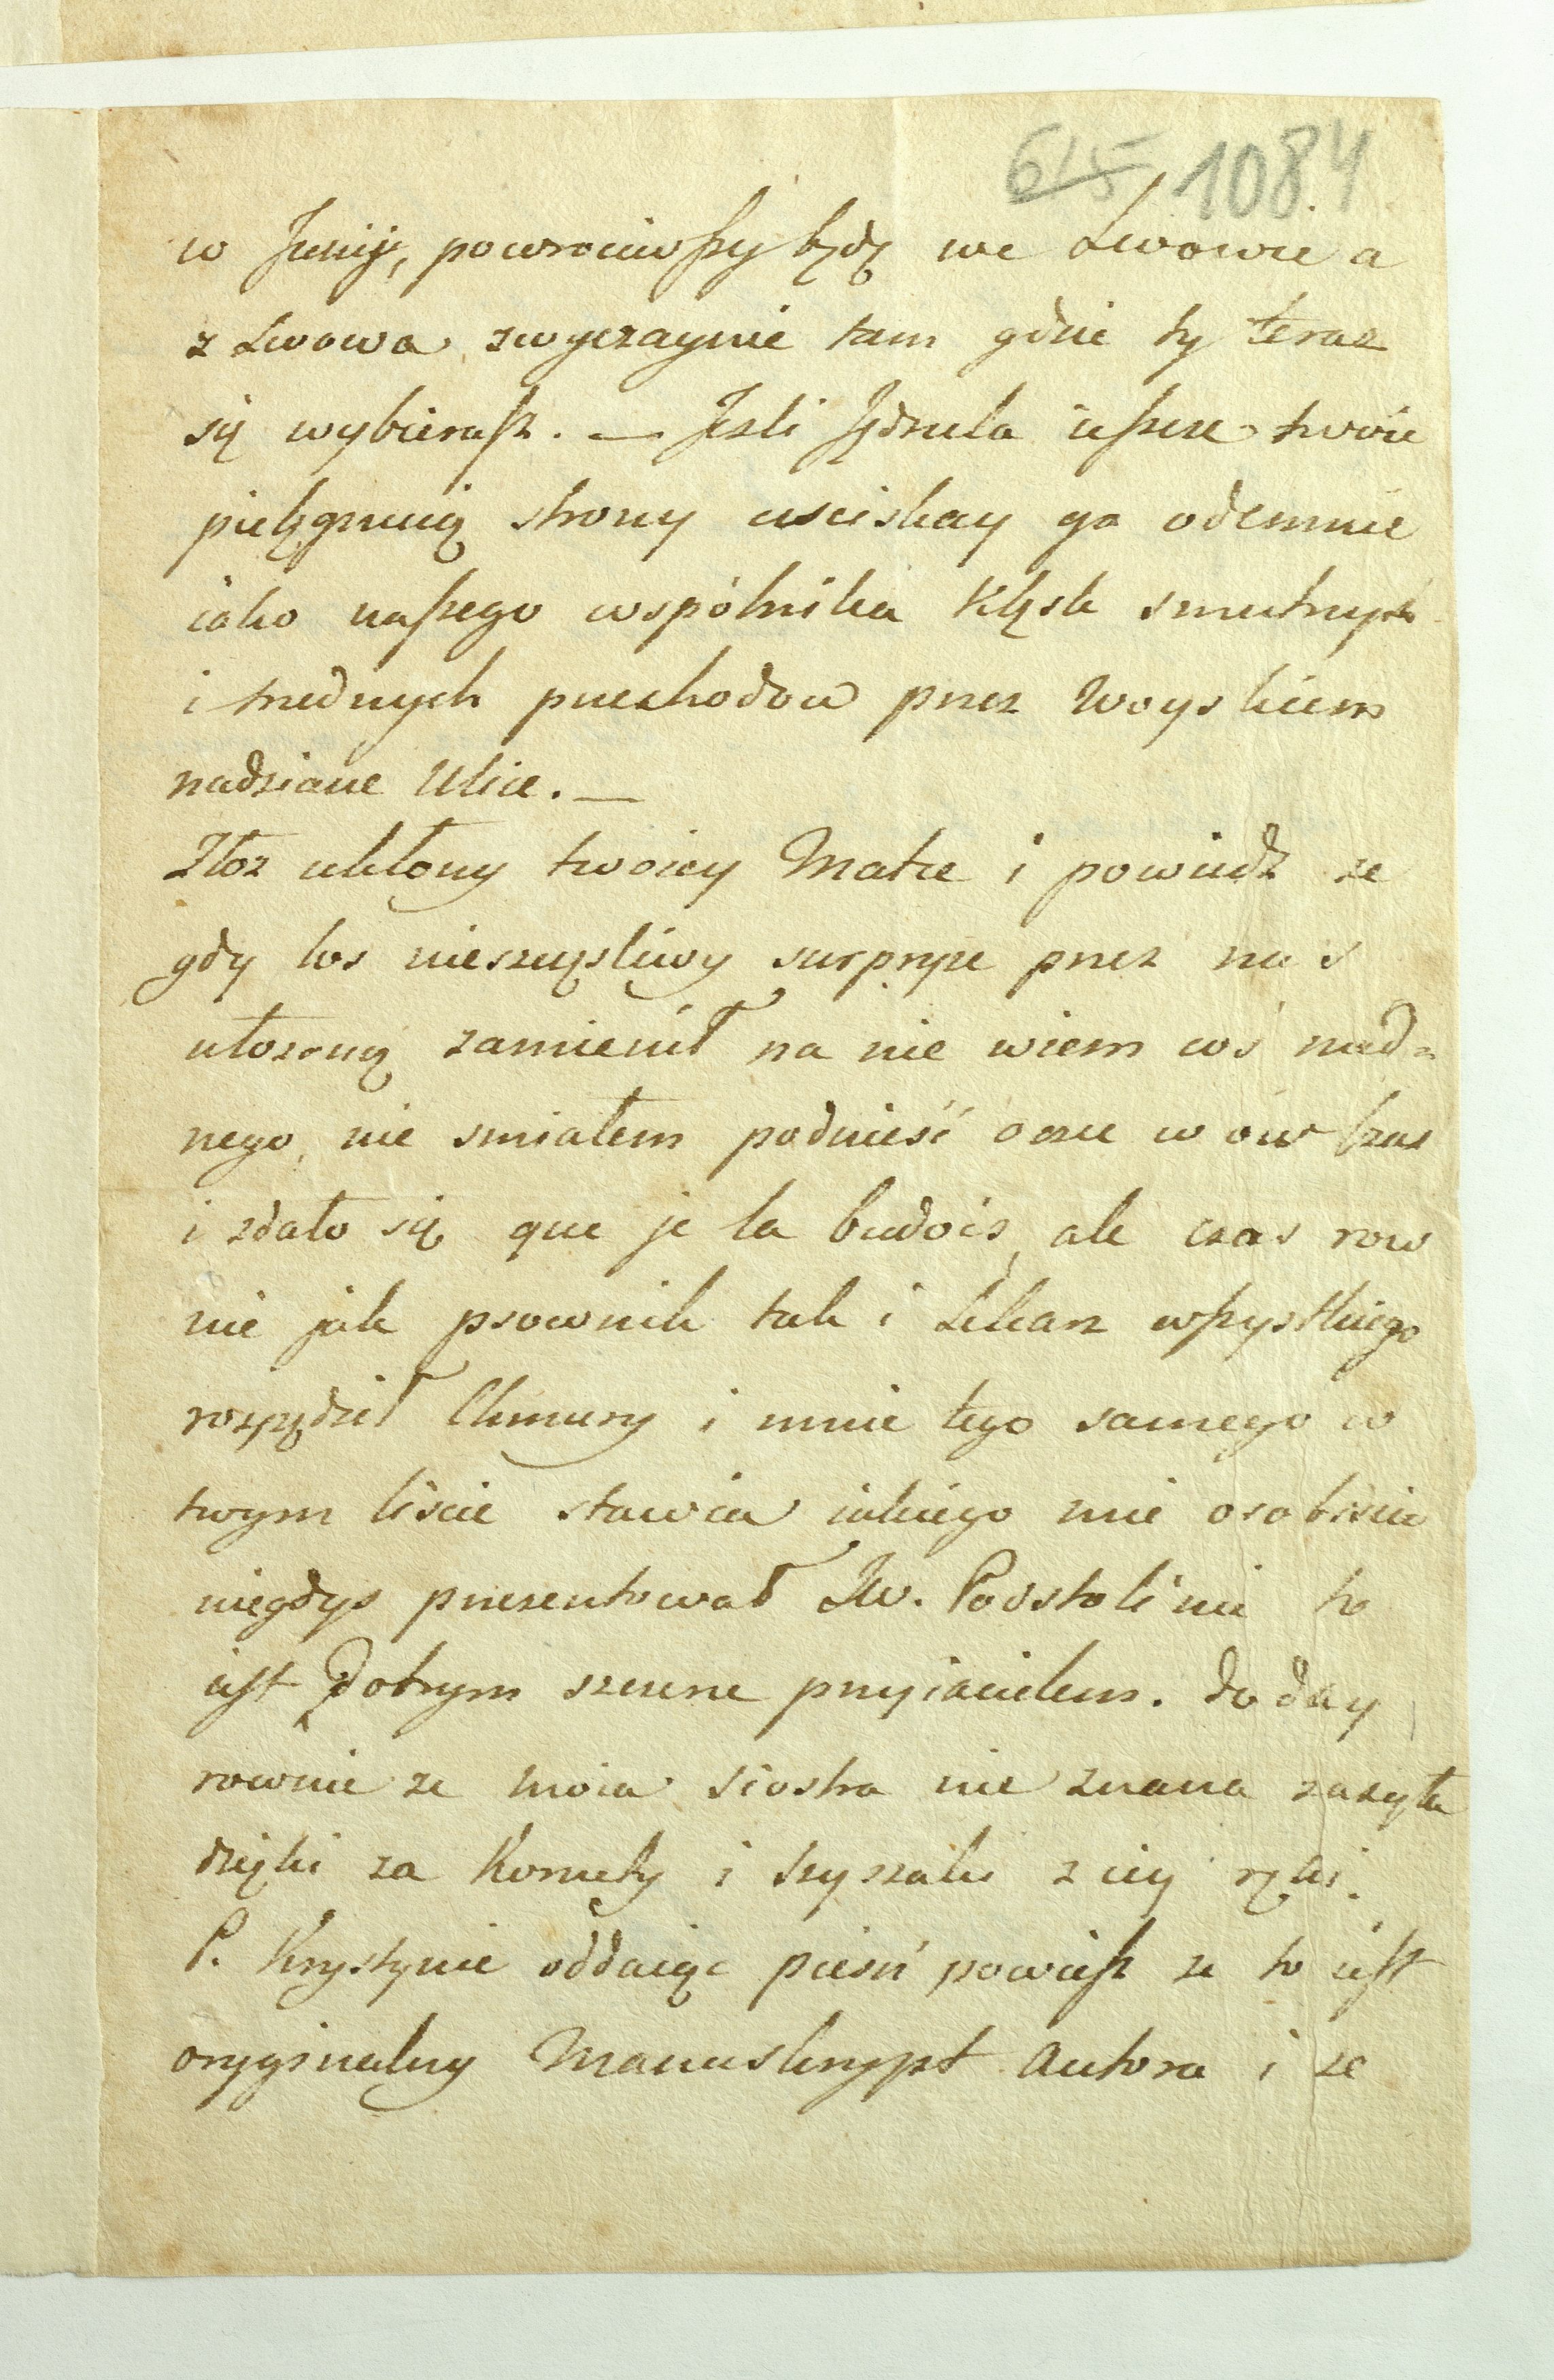 615 1084
w Junij, powrociwszy będę we Lwowie a
z Lwowa zwyczaynie tam gdzie ty teraz
się wybierasz. — Jesli Jędrula ieszcze twoie
pielęgnuią strony usciskay go odemnie
iako naszego wspólnika klęsk smutnych
i trudnych przechodow przez Woyskiem
nadziane Ulice. —
Złoz ukłony twoiey Matce i powiedz ze
gdy los nieszczęsliwy surpryze przez nas
ułozoną zamienił na nie wiem coś nud=
nego, nie smiałem podnieść oczu w ów czas
i zdało się que je la budois, ale czas row
nie jak psownik tak i Lekarz wszystkiego
rozpędził Chmury i mnie tego samego w
twym liscie stawia iakiego mie osobiscie
niegdys prezentował Jw. Podstolinie to
iest Dobrym szczerze przyiacielem. doday
rownie ze moia siostra nie znana zasyła
dzięki za Komety i Szyszaki z iey ręki.
P. Krystynie oddaiąc piesń powiesz ze to iest
oryginalny Manuskrypt Autora i ze